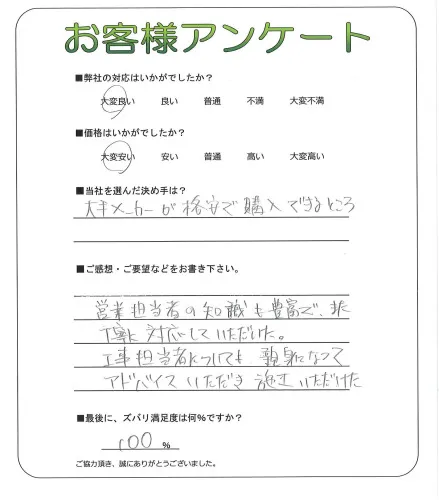 お客様アンケート
■弊社の対応はいかがでしたか？
大変良い 良い 普通 不満 大変不満
■価格はいかがでしたか？
大変安い 安い 普通 高い 大変高い
■当社を選んだ決め手は？
大手メーカーが格安で購入できるところ
■ご感想・ご要望などをお書き下さい。
営業担当者の知識も豊富で、また
丁寧に対応していただけた。
工事担当者についても親身になって
アドバイスいただき施工いただけた
■最後に、ズバリ満足度は何％ですか？
100 %
ご協力頂き、誠にありがとうございました。